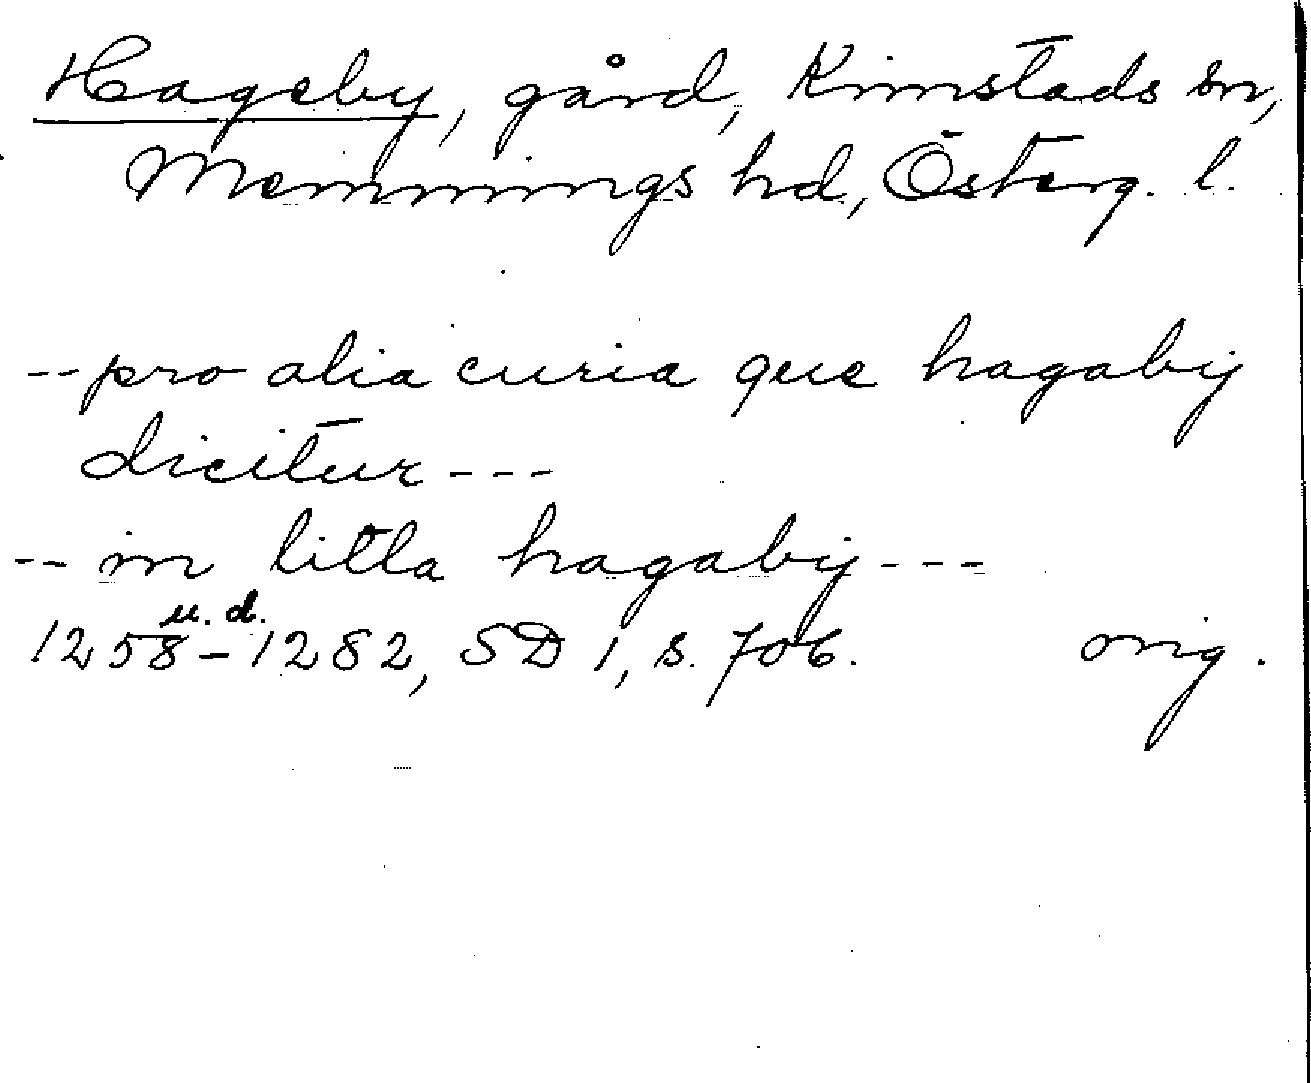 Hageby, gård, Kimstads sn,
Memmings hd, Österg. l.
-- pro alia curia que hagaby
dicitur ---
-- in litla hagaby ---
u. d.
1258-1282, SD 1, s. 706. orig.